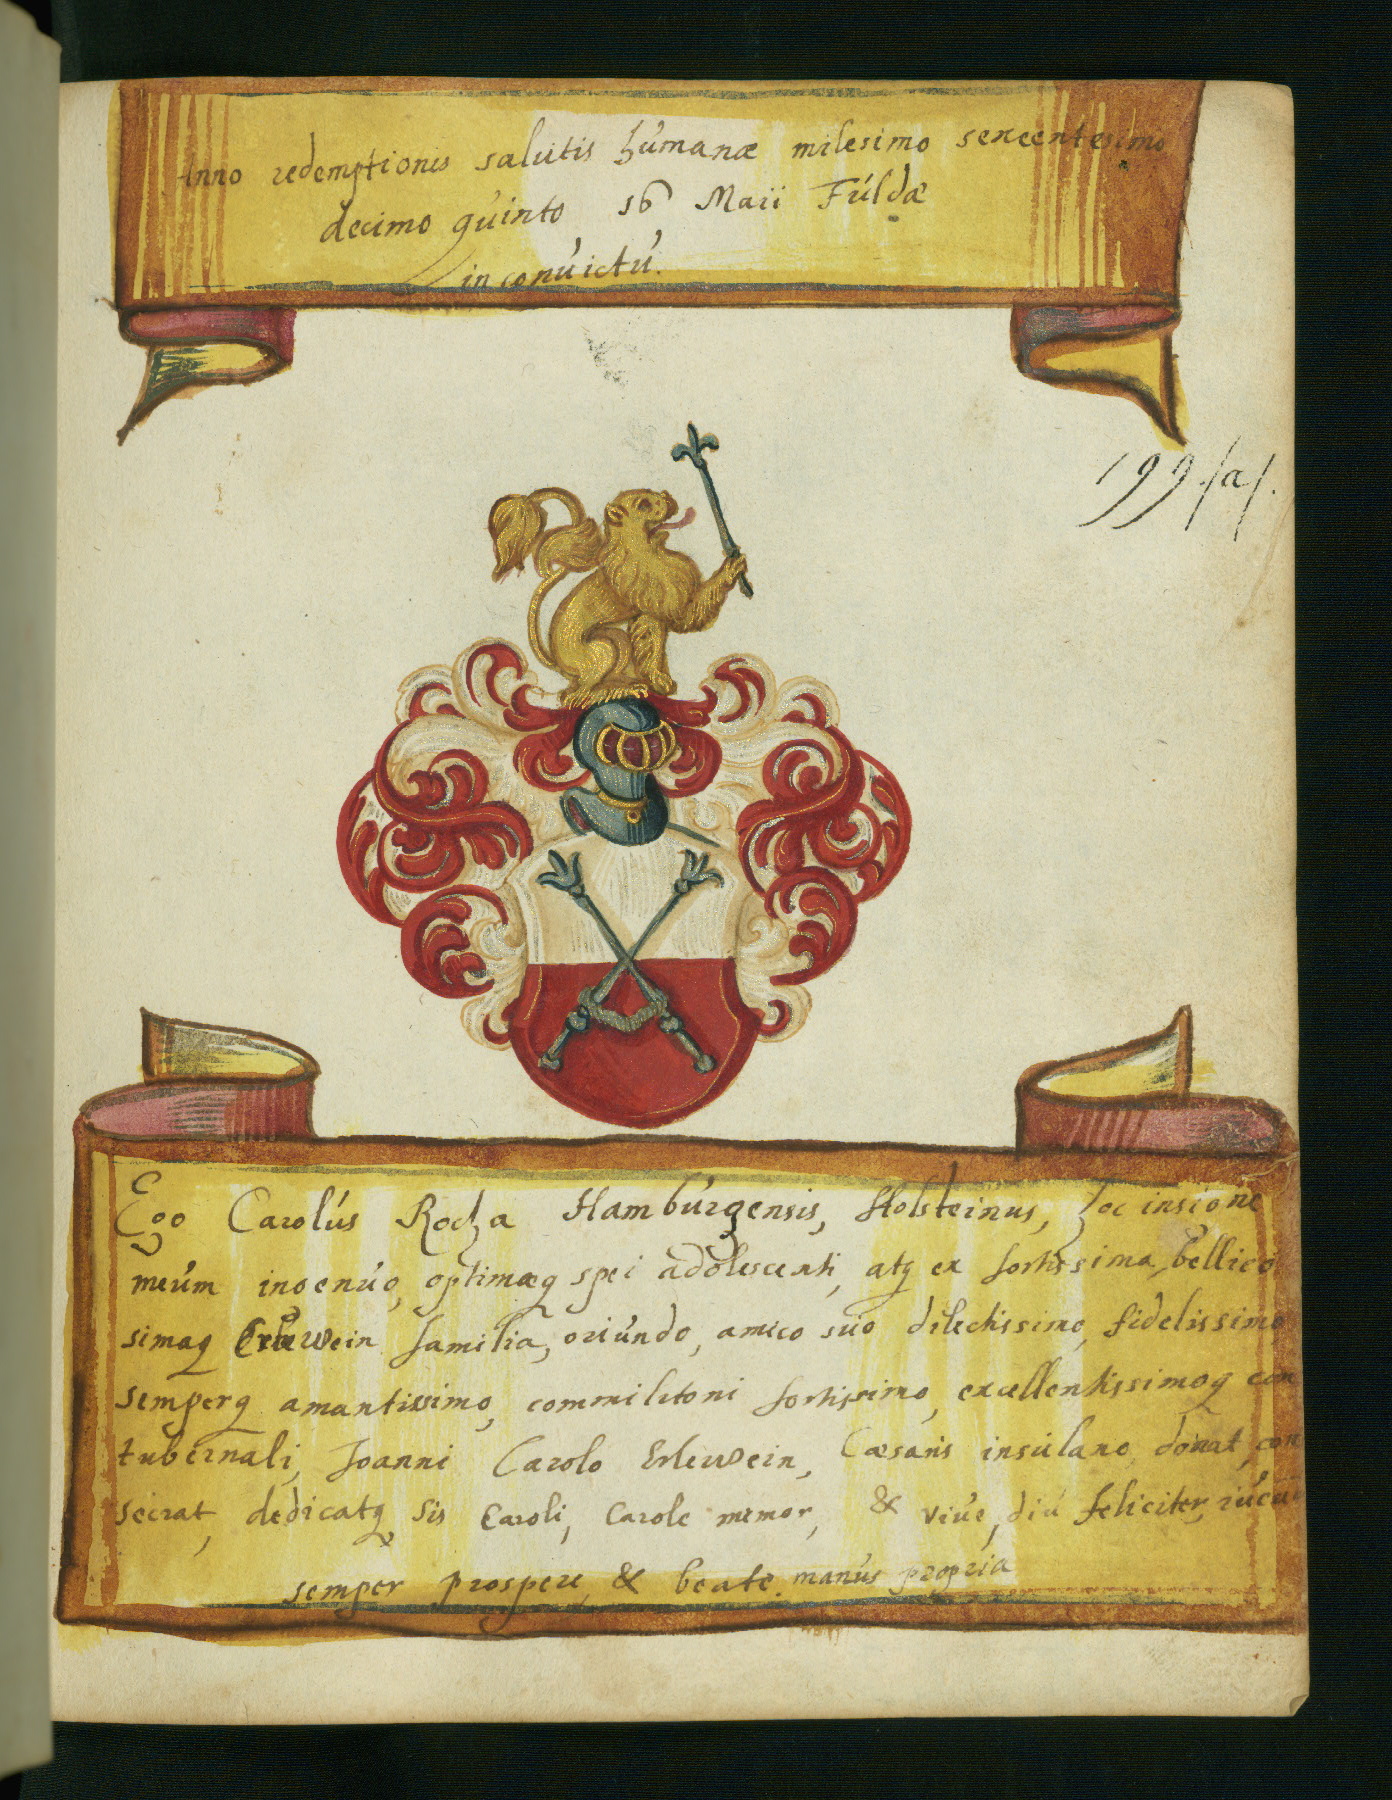 Anno redemptionis salutis humanæ milesimo sexcentesimo
decimo quinto 16 Maii Fuldæ
in convictu.
199/a/.
Ego Carolus Rocha Hamburgensis, Holsteinus, hoc insigne
meum ingenuo, optimæq spei adolescenti, atq ex fortissima, bellico
simaq Erlewein familia, oriundo, amico suo dilectissimo, fidelissimo
semperq amantissimo, commilitoni fortissimo, excellentissimoq con
tubernali, Joanni Carolo Erlewein, Cæsaris insulano, donat, con
secrat, dedicatq sis Caroli, Carole memor, & vive, diu feliciter,
semper prospere, & beate. manus propria